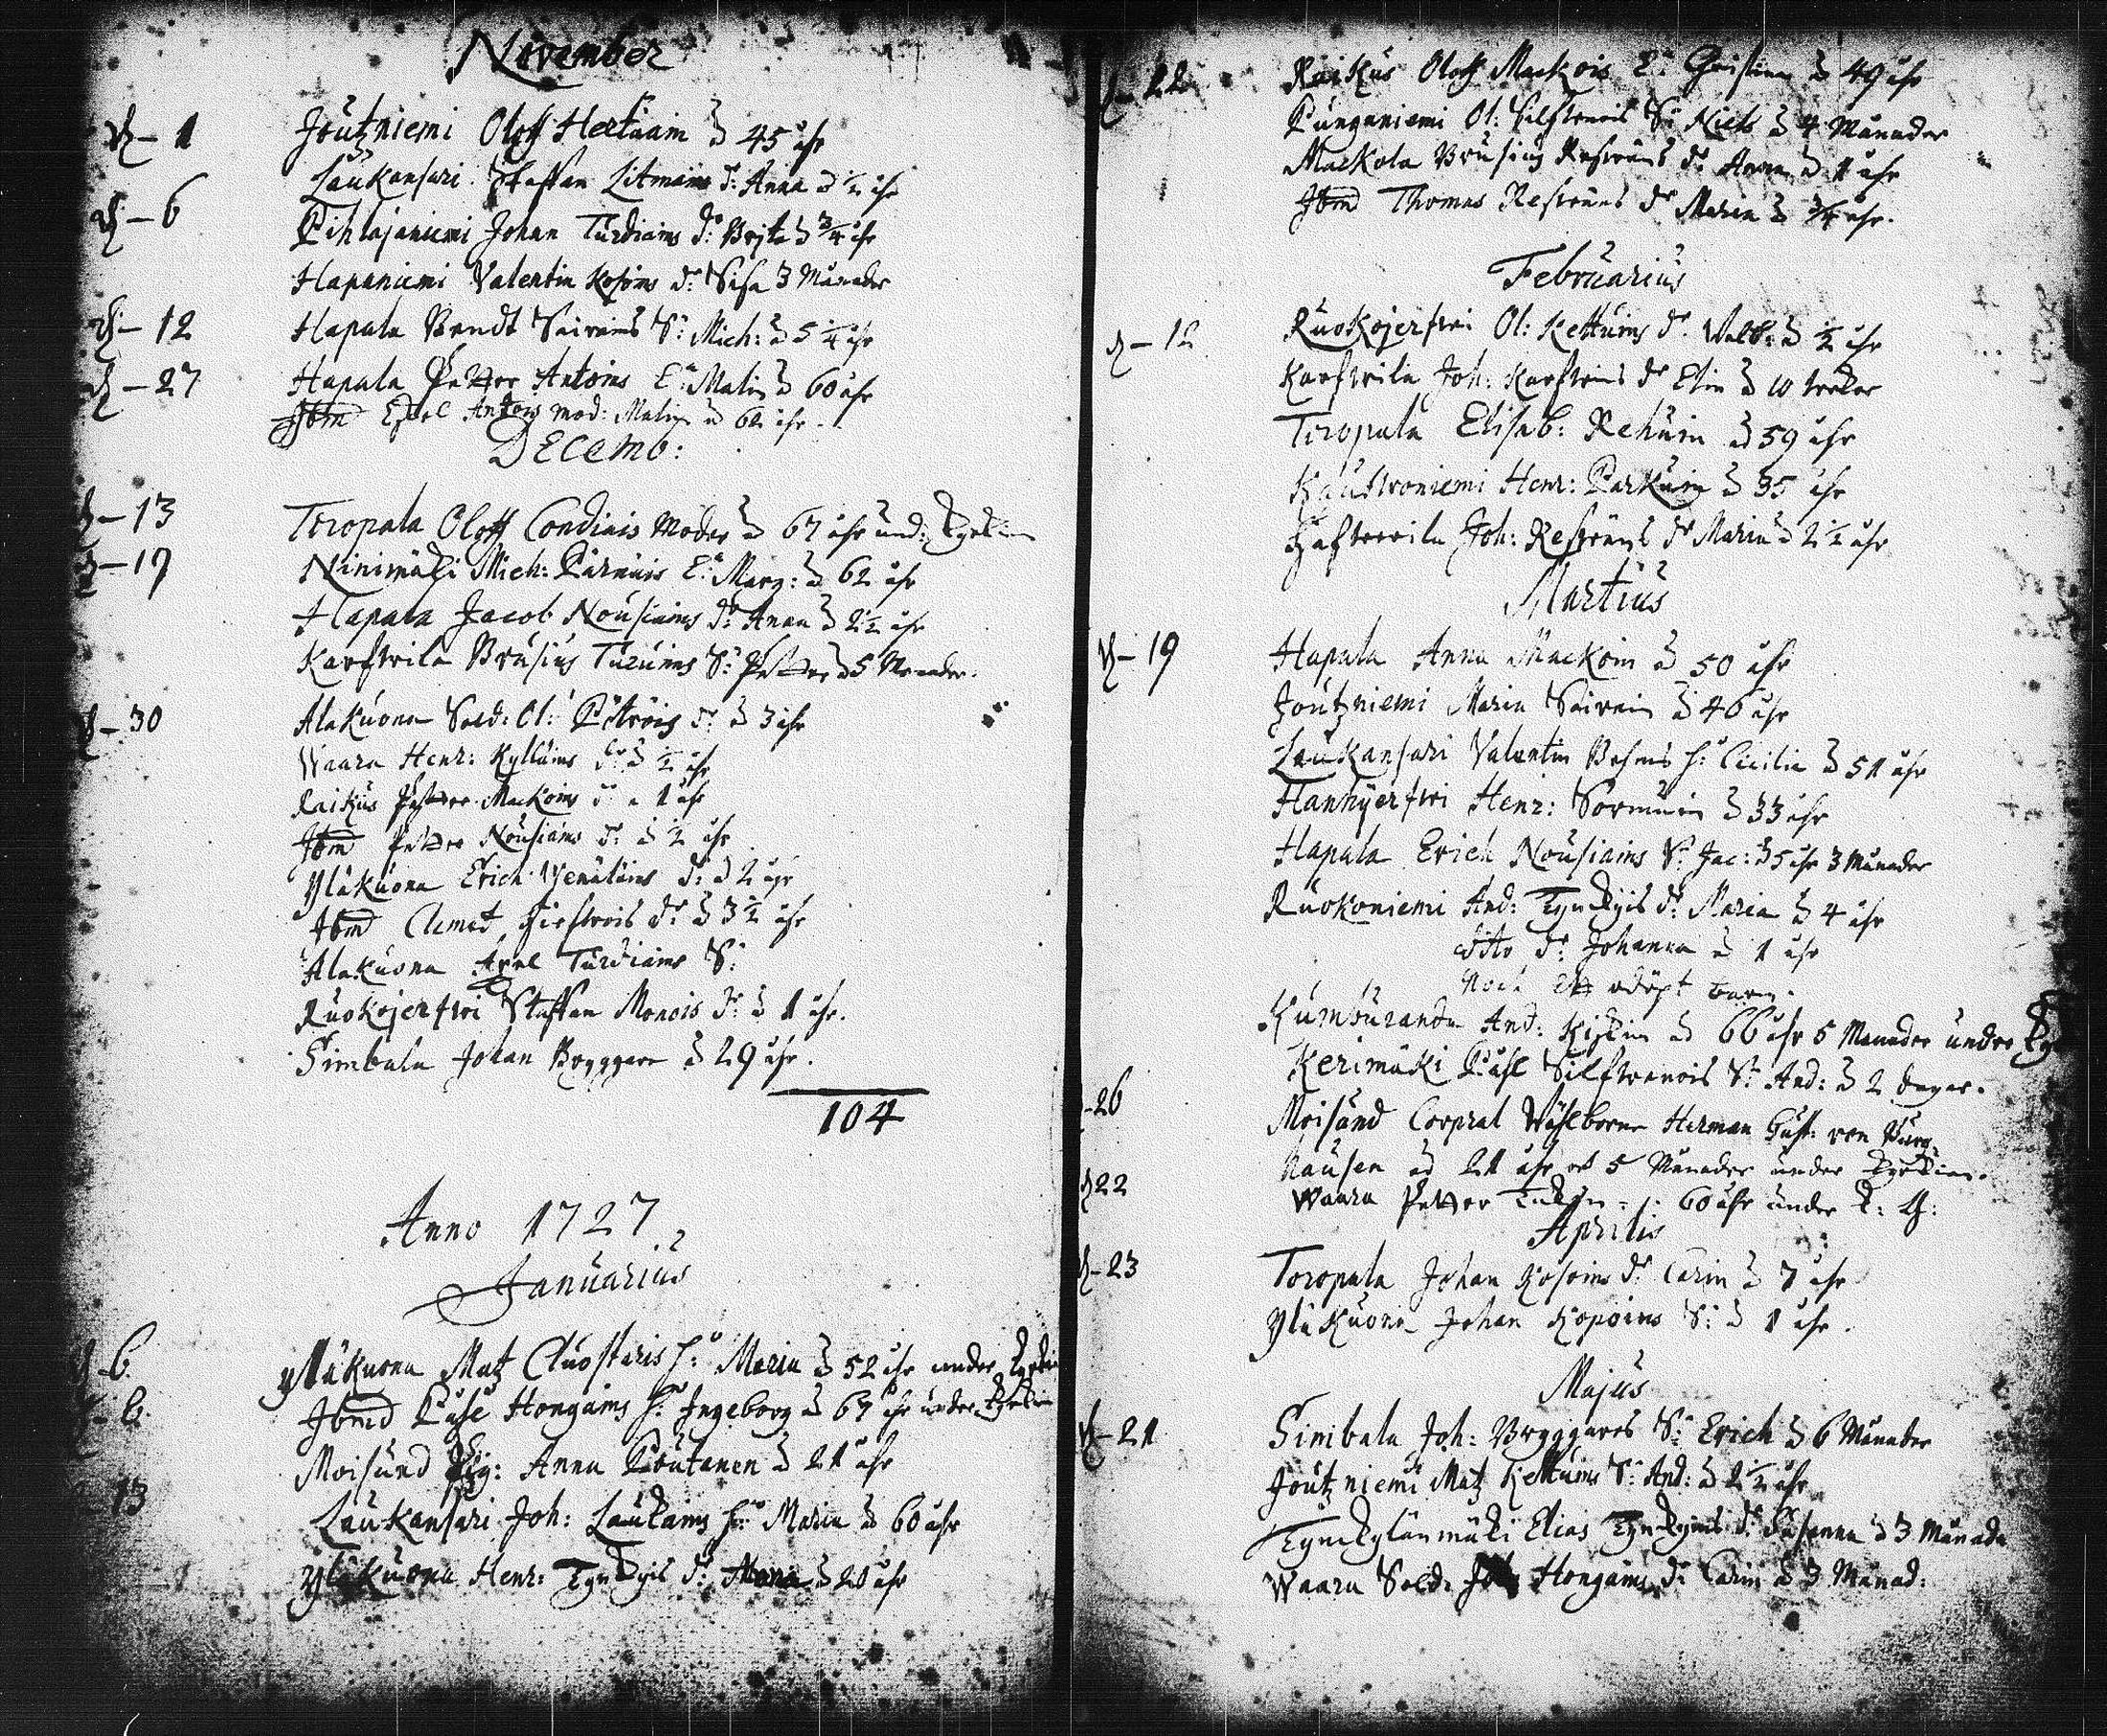 November
1 Joutzniemi Oloff Hertuain 45 åhr
Laukansari Staffan Litmains d: Anna ½ åhr
6 Pihlajaniemi Johan Turdiains d: Brjta ¾ åhr
Hapaniemi Valentin Kosoins d: Lisa 3 Månader
12 Hapala Bendt Sairains S: Mich: 5 ¼ åhr
27 Hapala Petter Antoins E: Malin 60 åhr
Ibm Antois mod: Malin 62 åhr
Decemb:
13 Toropala Oloff Condiais Moder 67 åhr und:
17 Ninimäki Mich: Pärnäis E: Marg: 62 åhr
Hapala Jacob Nousiains d: Anna 2½ åhr
Karfwila Brusius Turuins S: Petter 5 Månader.
30 Alakuona Sold: Ol: d: 3 åhr
Waara Henr: Kylläins d: ½ åhr
Raikus Petter Mackoins d: 1 åhr
Ibm Petter Nousiains d: ½ åhr
Yläkuona Erich Venäläins d: 2 åhr
Ibm Clemet d: 3½ åhr
Alakuona Axel Turdiains S:
Ruokojerfwi Staffan Monois d: 1 åhr.
Simbala Johan Bryggare 29 åhr.
104
Anno 1727
Januarius
6. Yläkuona Matz Cluostaris h: Maria 52 åhr under
Ibmd Påhl Hongains h: Ingeborg 67 åhr under
Moisund Pig: Anna Poutanen 21 åhr
13 Laukansari Joh: Laukains h: Maria 60 åhr
Yläkuona Henr: Tynckyis d: Maria 20 åhr
22 Raikus Oloff Mackois E: Christina 49 åhr
Punganiemi Ol: Silfwenois S: Nich 4 Månader
Mackola Brusius Resväns d: Anna 1 åhr
Ibmd Thomas Resväns d: Maria ¾ åhr.
Februarius
12 Ruokojerfwi Ol: Kettuins d: Walb: ½ åhr
Karfwila Joh: Karfwins d: Elin 10 wekor
Toropala Elisab: Rehuin 59 åhr
Kaustwoniemi Henr: Parkuin 35 åhr
Joh: Resväns d: Maria 2½ åhr
Martius
19 Hapala Anna Mackoin 50 åhr
Joutzniemi Maria Sairain 46 åhr
Laukansari Valentin Behms h: Cicilia 51 åhr
Hannyerfwi Henr: Sormuin 33 åhr
Hapala Erich Nousiains S: Jac: 5 åhr 3 Månader
Ruokoniemi And: Tynckyis d: Maria 4 åhr
dito d: Johanna 1 åhr
Noch Ett odöpt barn.
Kumburanda And: 66 åhr 5 Månader under
Kerimäki Påhl Silfwenois S: And: 2 dagar.
26 Moisund Corpral Wählborne Herman Gust: von Burg
hausen 21 åhr och 5 Månader under
22 Waara Petter 60 åhr under
Aprilis
23 Toropala Johan Kosoins d: Carin 7 åhr
Yläkuona Johan Kopoins S: 1 åhr.
Majus
21 Simbala Joh: Bryggares S: Erich 6 Månader
Joutzniemi Matz Kettuins S: And: 2½ åhr
Tynckylänmäki Elias Tynckyins d: Susanna 3 Månade
Waara Sold: Hongains d: Carin 3 Månad: